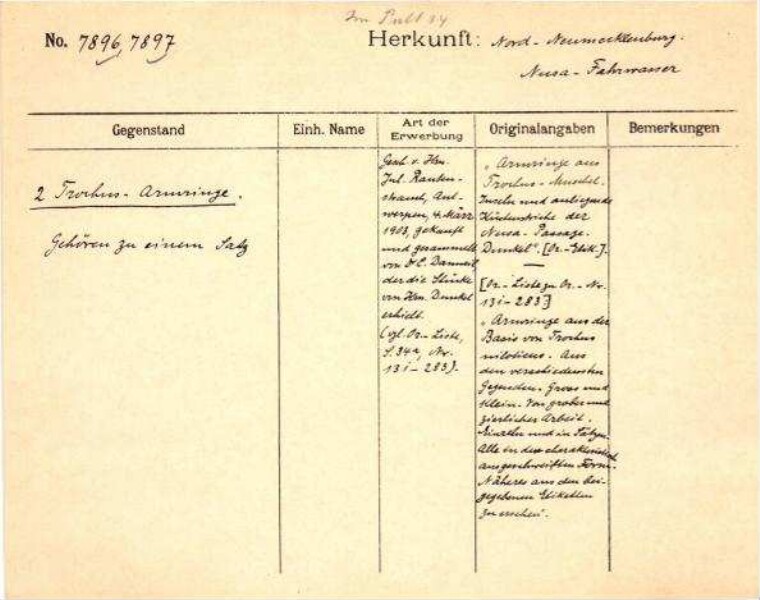 Im Pult 14
No. 7896, 7897
Herkunft: Nord-Neumecklenburg.
Nusa-Fahrwasser
Gegenstand
Einh. Name
Art der
Erwerbung
Originalangaben
Bemerkungen
2 Trochus-Armringe.
Gehören zu einem Satz
Gesch. v. Hrn.
Jul. Rauten-
strauch, Ant-
werpen, 4. März
1903, gekauft
und gesammelt
von O. C. Danneil,
der die Stücke
von Hrn. Dunkel
erhielt.
(vgl. Or-Liste,
S. 34a, Nr.
13i-283).
„Armringe aus
Trochus-Muschel.
Inseln und anliegende
Küstenstriche der
Nusa-Passage.
Dunkel". [Or.-Etik.].
[Or-Liste zu Or.-Nr.
13i-283]
„Armringe aus der
Basis von Trochus
niloticus. Aus
den verschiedensten
Gegenden. Gross und
klein. Von grober und
zierlicher Arbeit.
Einzeln und in Sätzen.
Alle in der charakteristisch
ausgeschweiften Form.
Näheres aus den bei-
gegebenen Etiketten
zu ersehen".